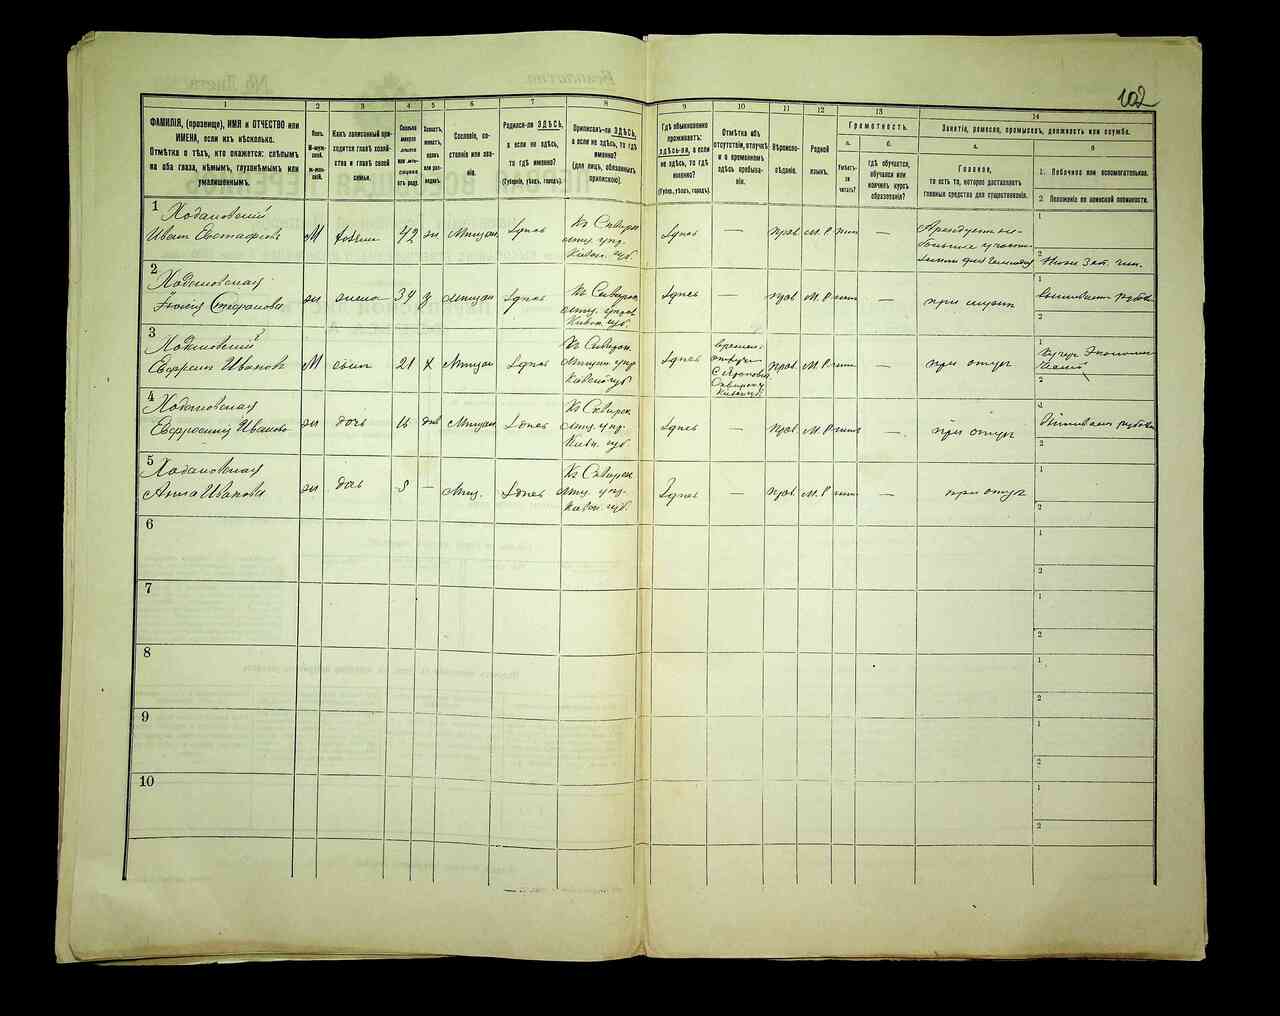 102
1
2
3
4
5
6
7
8
9
10
11
12
13
14
ФАМИЛІЯ, (прозвище), ИМЯ и ОТЧЕСТВО или
ИМЕНА, если ихъ нѣсколько.
Отмѣтка о тѣхъ, кто окажется: слѣпымъ
на оба глаза, нѣмымъ, глухонѣмымъ или
умалишеннымъ.
Полъ.
М-мужской.
Ж-женскій.
Какъ записанный приходится главѣ хозяйства и главѣ своей семьи.
Сколько минуло лѣтъ или мѣсяцевъ отъ роду.
Холостъ, женатъ, вдовъ или разведенъ.
Сословіе, состояніе или званіе.
Родился-ли ЗДѢСЬ,
а если не здѣсь,
то гдѣ именно?
(Губернія, уѣздъ, городъ).
Приписанъ-ли ЗДѢСЬ,
а если не здѣсь, то гдѣ
именно?
(для лицъ, обязанныхъ
припискою).
Гдѣ обыкновенно
проживаетъ:
ЗДѢСЬ-ли, а если
не здѣсь, то гдѣ
именно?
(Губернія, уѣздъ, городъ).
Отмѣтка объ
отсутствіи, отлучкѣ
и о временномъ
здѣсь пребываніи.
Вѣроисповѣданіе.
Родной
языкъ.
Грамотность.
а.
Умѣетъ-ли
читать?
б.
гдѣ обучается,
обучался или
кончилъ курсъ
образованія?
Занятіе, ремесло, промыселъ, должность или служба.
а.
Главное,
то есть то, которое доставляетъ
главныя средства для существованія.
б
1. Побочное или вспомогательное.
2. Положеніе по воинской повинности.
1
Ходаковскій
Иванъ Евстафіевъ
М
хозяинъ
42
жн
Мѣщан
Здѣсь
Къ Сквирск
мѣщ. упр.
Кіевск. губ.
Здѣсь
—
прав
М. Р
—
Арендуетъ не-
большіе участки
1
2
2
Ходаковская
Стефанова
ж
жена
39
мѣщан
Здѣсь
Кіевск. губ.
Здѣсь
—
прав
М. Р
—
при мужѣ
1
2
3
Ходаковскій
Ефремъ Ивановъ
М
сынъ
21
Х
Мѣщан
Здѣсь
Мѣщан упр
Кіевской губ
Здѣсь
прав.
М. Р
—
при отцѣ
1
Кучеръ
2
4
Ходаковская
Евфросинія Иванова
ж
дочь
дѣв
Мѣщан
Здѣсь
Къ Сквирск
мѣщ. упр.
Кіевск. губ
Здѣсь
—
прав
М. Р
—
при отцѣ
1
2
5
Ходаковская
Анна Иванова
ж
дочь
5
—
Мѣщ.
Здѣсь
Къ Сквирск
мѣщ. упр.
Кіевск. губ.
Здѣсь
—
прав
М. Р
—
при отцѣ
1
2
6
1
2
7
1
2
8
1
2
9
1
2
10
1
2